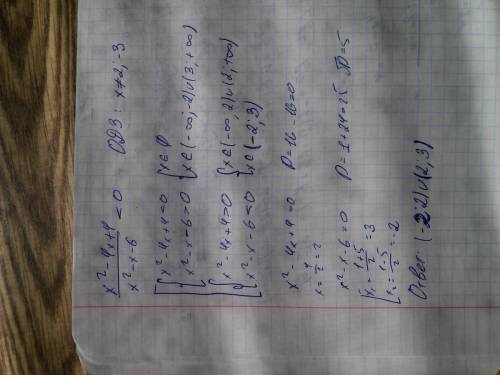 x² - 4x + 4 / x² - x - 6 < 0 ОДЗ: x ≠ 2; -3
[ { x² - 4x + 4 < 0 { x ∈ Ø
x² - x - 6 > 0 { x ∈ (-∞; -2) ∪ (3; +∞)
{ x² - 4x + 4 > 0 { x ∈ (-∞; 2) ∪ (2; +∞)
x² - x - 6 < 0 { x ∈ (-2; 3)
x² - 4x + 4 = 0 D = 16 - 16 = 0
x = 4/2 = 2
x² - x - 6 = 0 D = 1 + 24 = 25 √D = 5
[ x₁ = 1+5/2 = 3
x₂ = 1-5/2 = -2
Ответ: (-2; 2) ∪ (2; 3)